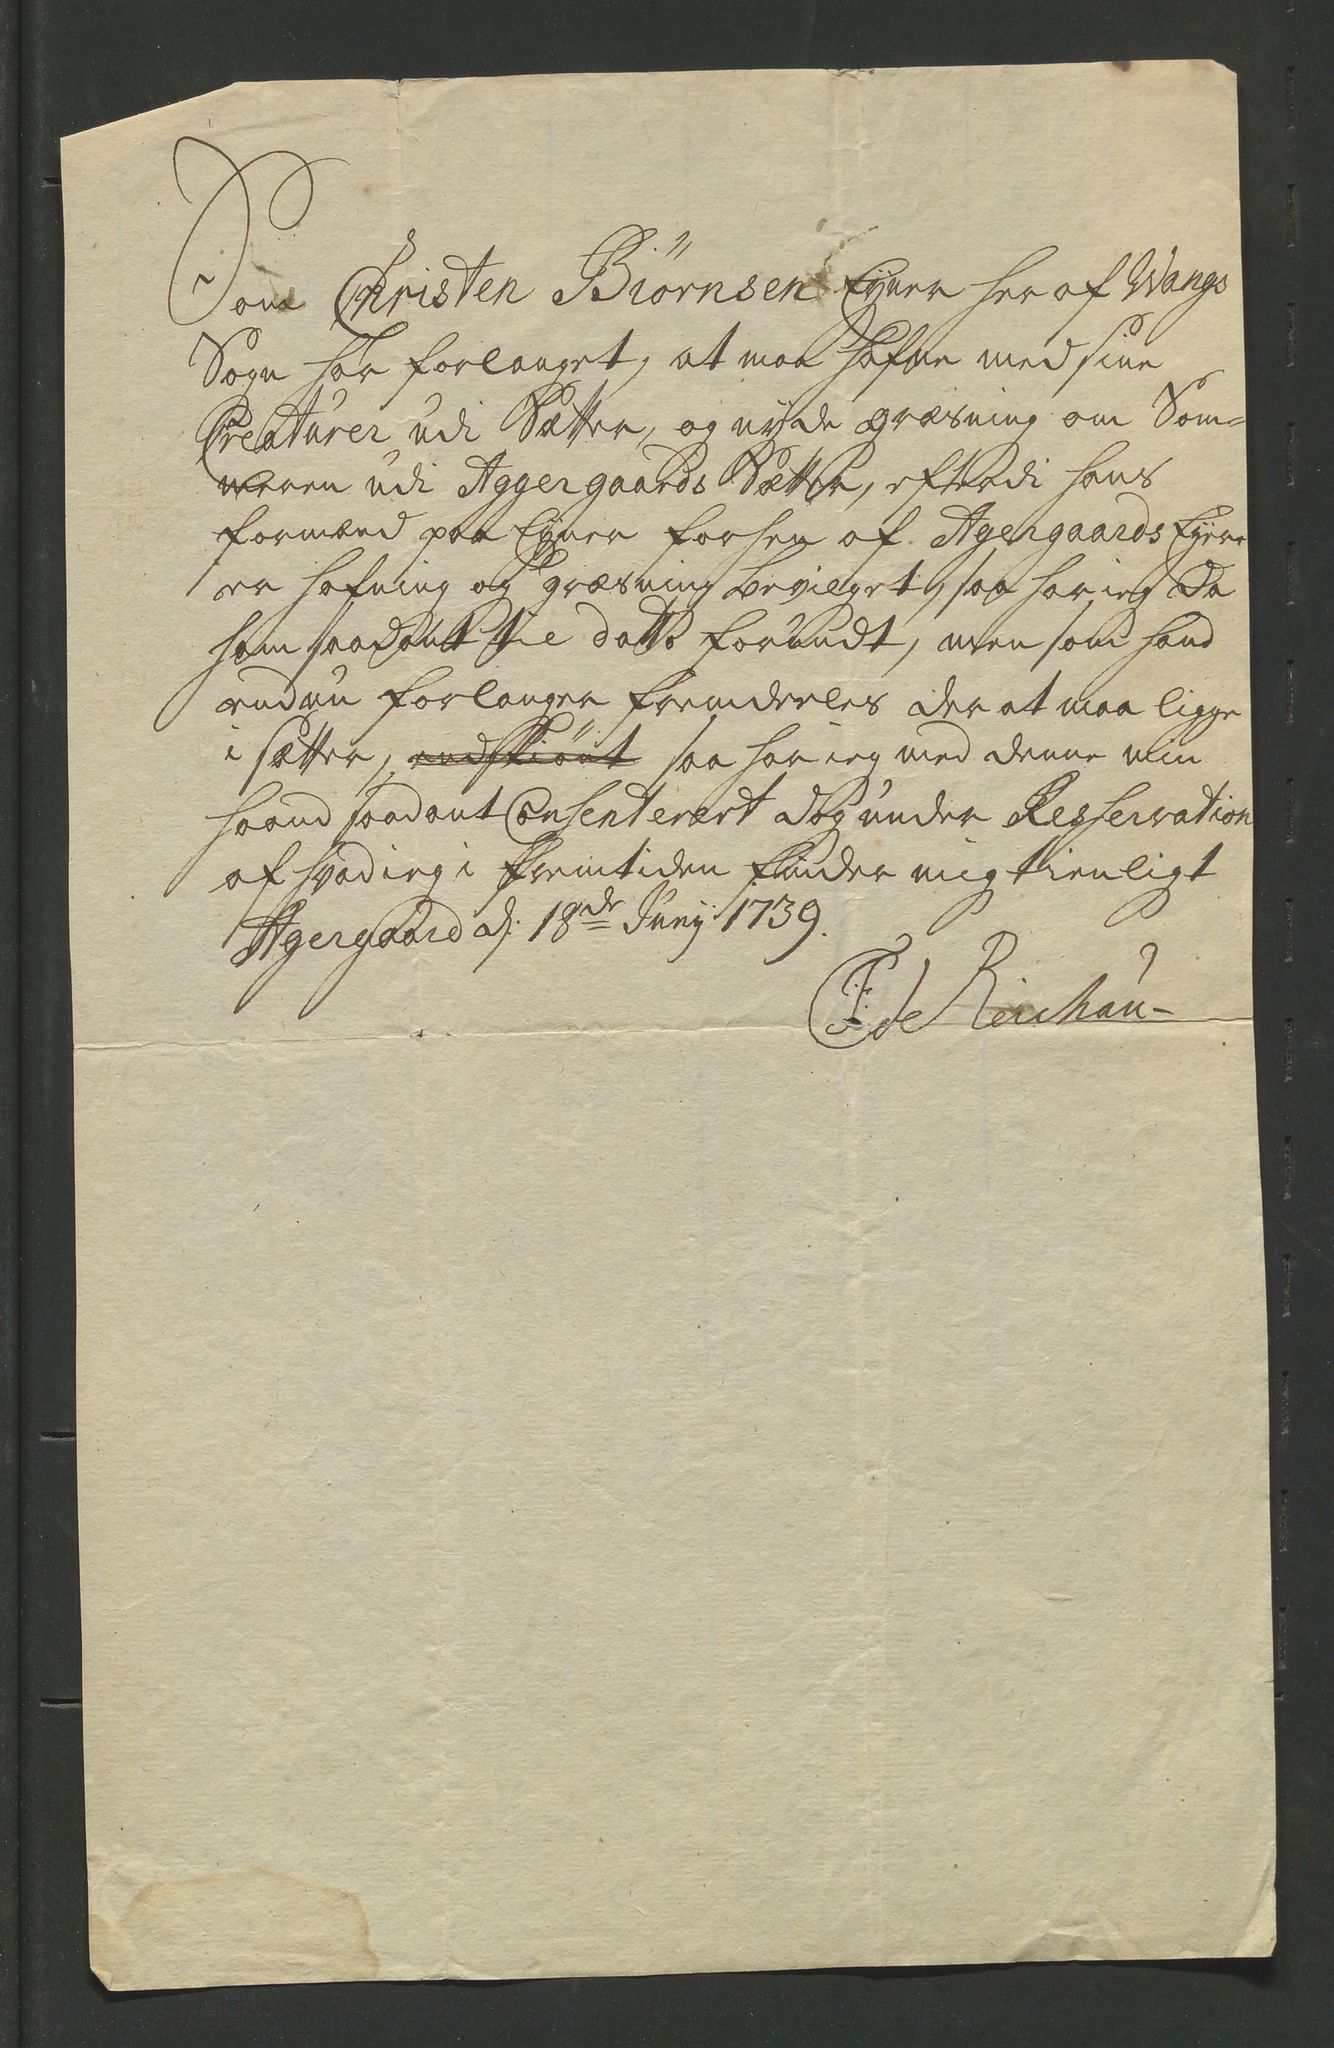 Som Christen Biørnsen Eÿner her af Wangs
Sogn har forlanget, at maa hafne med sine
Creaturer udi Sætter, og nÿde græsning om Som=
meren udi Aggergaards Sætter, efterdi hans
formænd paa Eÿner forhen af Agergaards Eÿere
er hafning og græsning bevilget, saa har ieg da
ham saadant til dato forundt, men som hand
endnu forlanger fremdeeles der at maa ligge
i sætter, endskiønt saa har ieg med denne min
haand saadant Consenterert dog under Resservation
af hvad ieg i fremtiden finder mig tienligt
Agergaard d: 18de Junÿ 1739.
F de Reichau